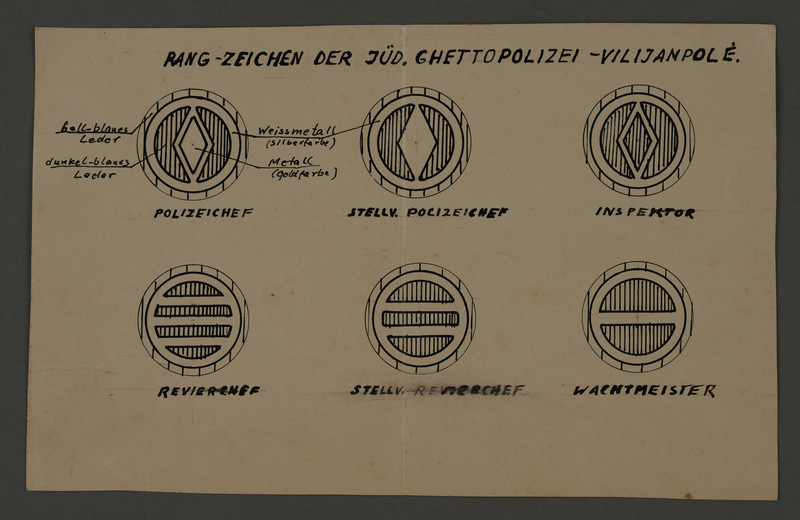 RANG-ZEICHEN DER JÜD. GHETTOPOLIZEI - VILIJAMPOLÉ.
hell-blaues
Leder
dunkel-blaues
Leder
Weissmetall
(silberfarbe)
Metall
(goldfarbe)
POLIZEICHEF
STELLV. POLIZEICHEF
INSPEKTOR
REVIERCHEF
STELLV. REVIERCHEF
WACHTMEISTER